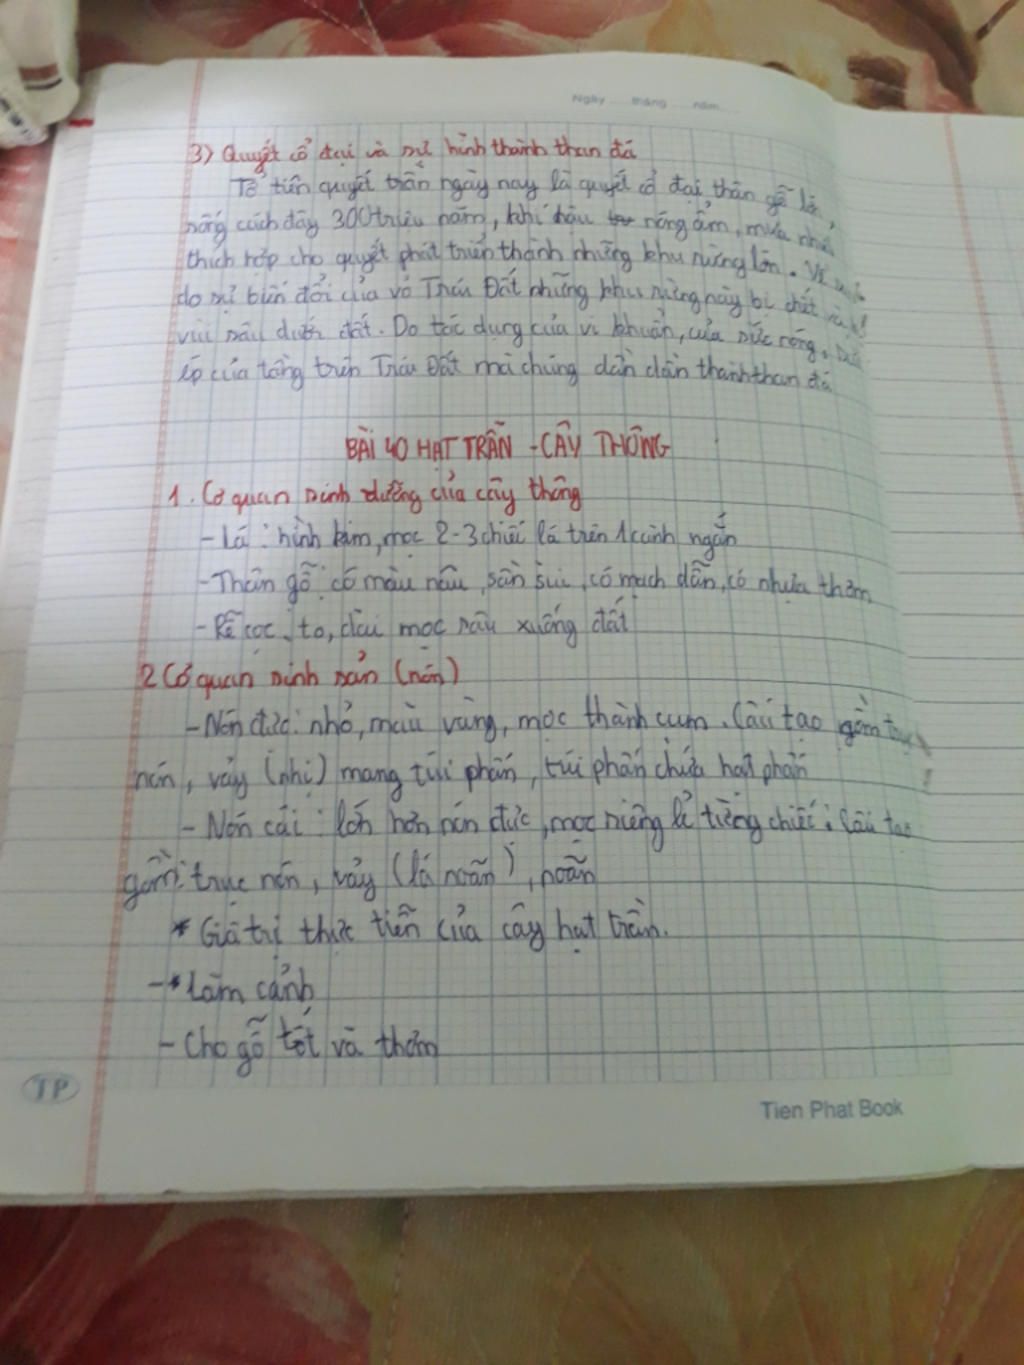 Ngày ..... tháng ..... năm.....
3) Quyết cổ đại và sự hình thành than đá
Tổ tiên quyết trần ngày nay là quyết cổ đại thân gỗ lớn,
sống cách đây 300 triệu năm, khí hậu nóng ẩm, mưa nhiều
thích hợp cho quyết phát triển thành những khu rừng lớn. Về
do sự biến đổi của vỏ Trái Đất những khu rừng này bị chết và
vùi sâu dưới đất. Do tác dụng của vi khuẩn, của sức nóng, sức
ép của tầng trên Trái Đất mà chúng dần dần thành than đá
BÀI 40 HẠT TRẦN - CÂY THÔNG
1. Cơ quan sinh dưỡng của cây thông
- Lá: hình kim, mọc 2-3 chiếc lá trên 1 cành ngắn
- Thân gỗ: có màu nâu, sần sùi, có mạch dẫn, có nhựa thơm
- Rễ cọc, to, dài mọc sâu xuống đất
2 Cơ quan sinh sản (nón)
- Nón đực: nhỏ, màu vàng, mọc thành cụm. Cấu tạo gồm trục
nón, vảy (nhị) mang túi phấn, túi phấn chứa hạt phấn
- Nón cái: lớn hơn nón đực, mọc riêng lẻ từng chiếc: Cấu tạo
gồm: trục nón, vảy (lá noãn), noãn
* Giá trị thực tiễn của cây hạt trần.
-* Làm cảnh
- Cho gỗ tốt và thơm
TP
Tien Phat Book